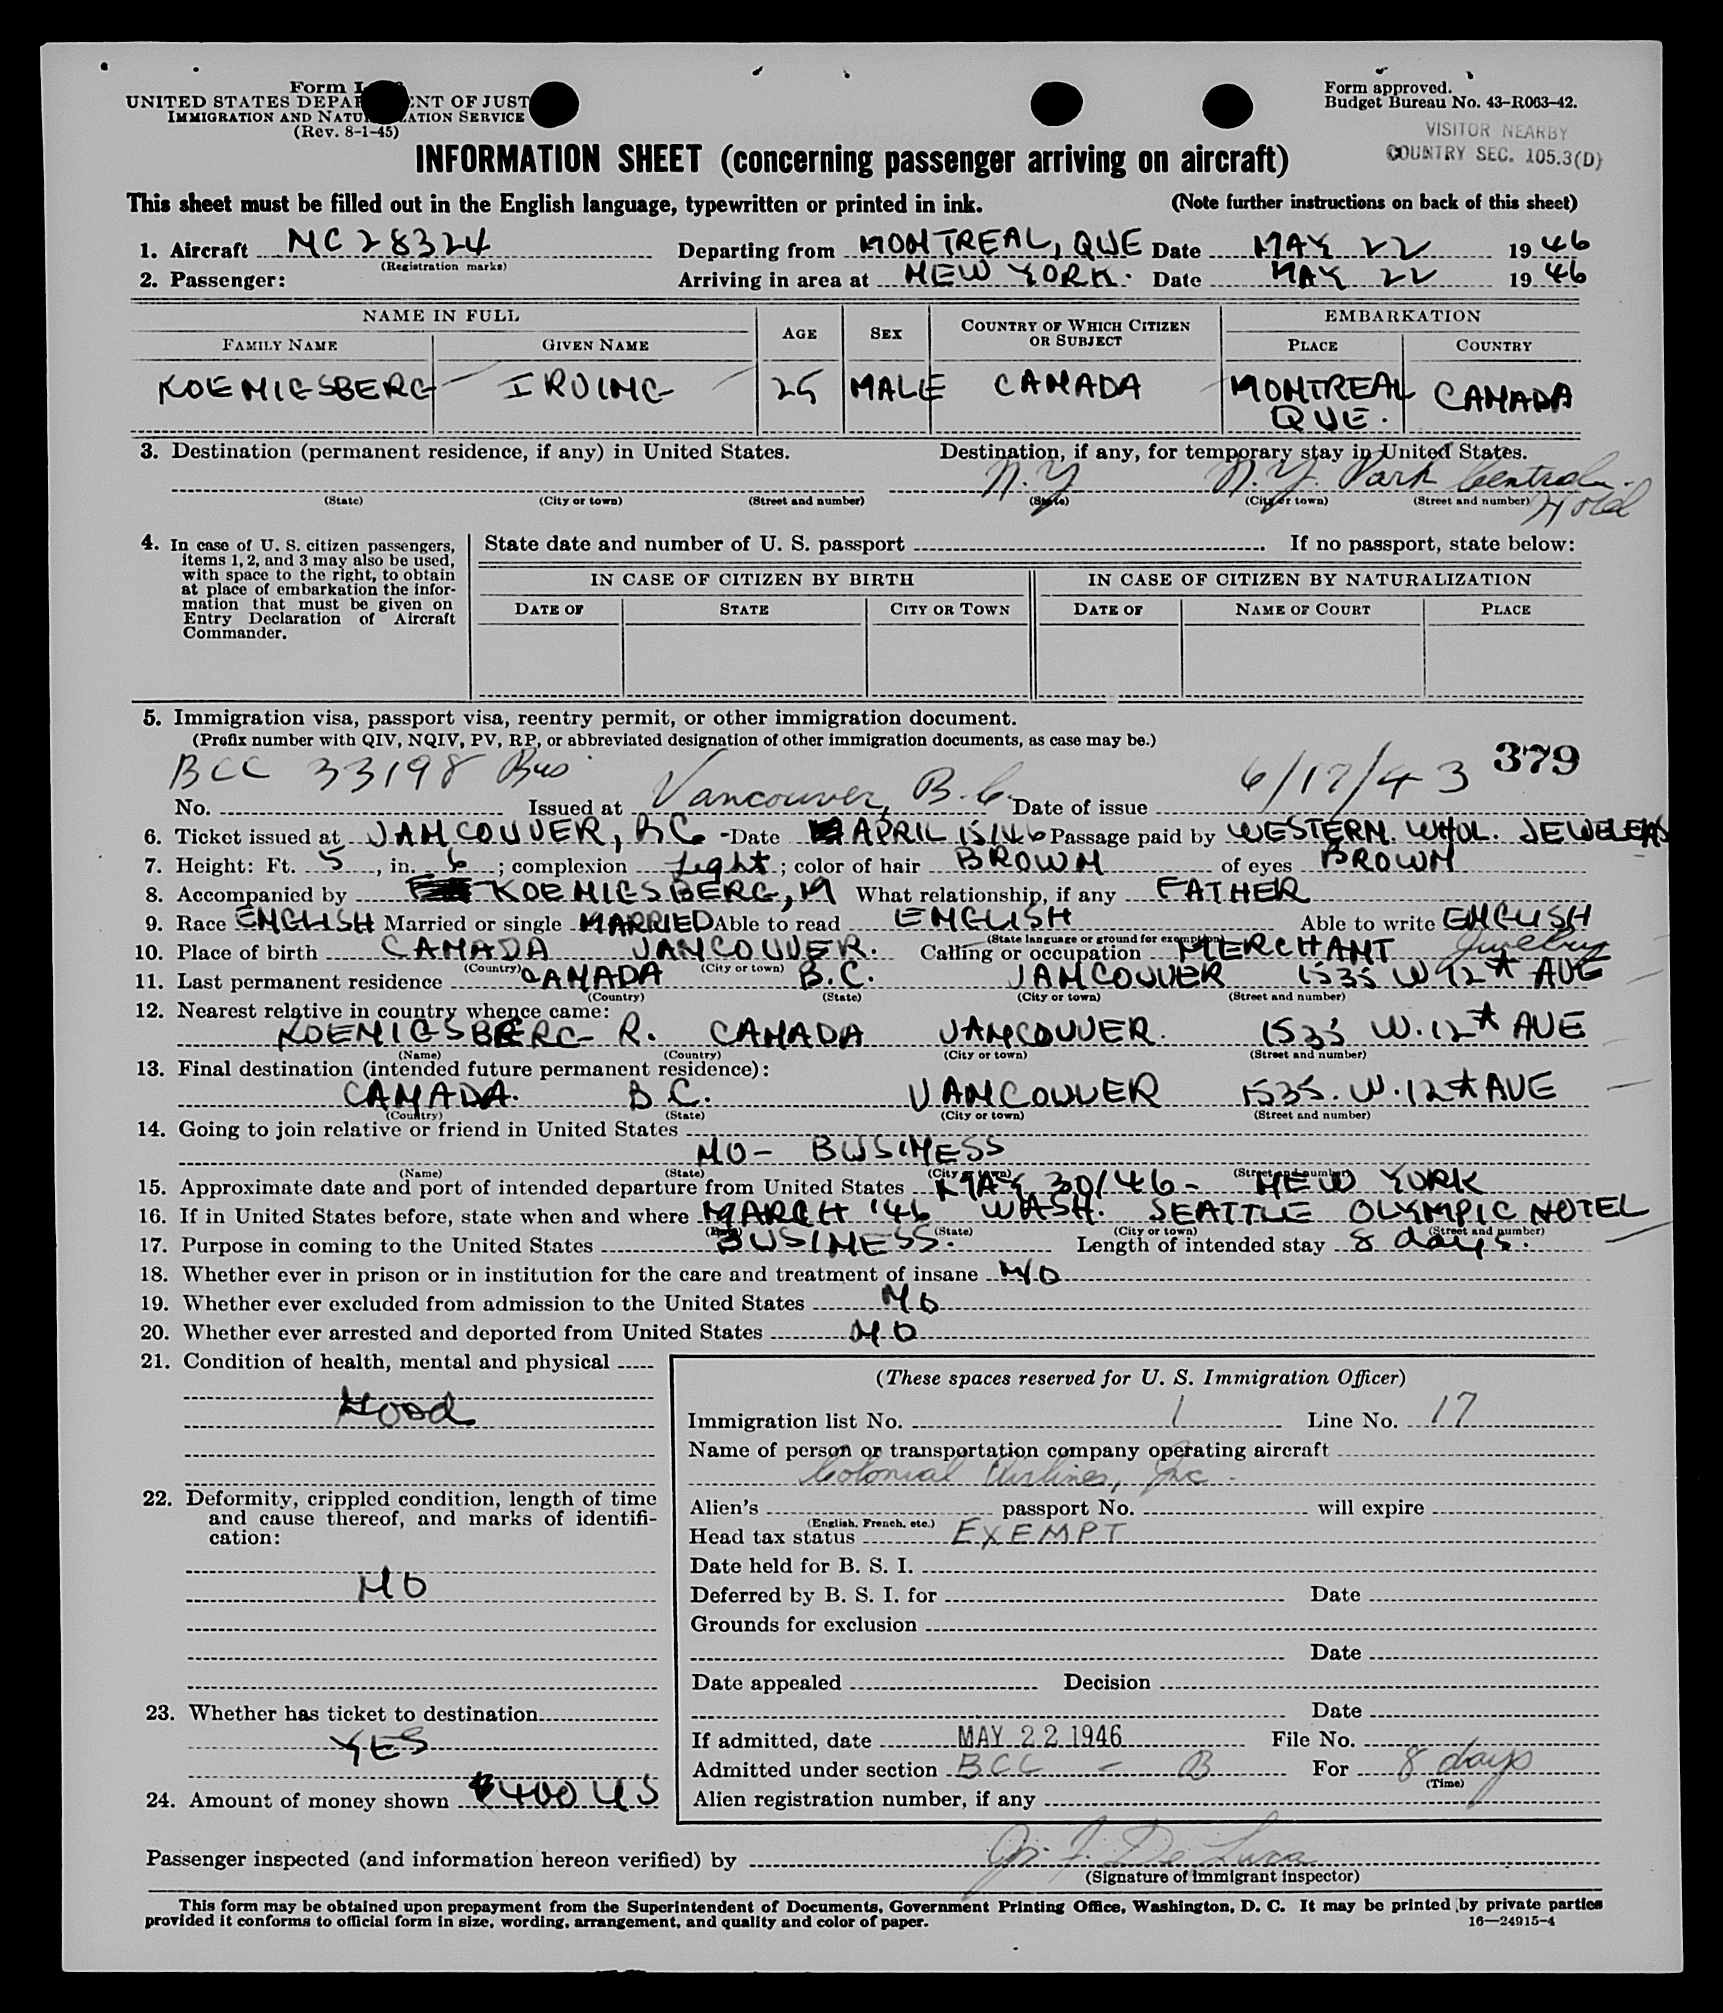 Form I
UNITED STATES DEPA ENT OF JUST
IMMIGRATION AND NATU ATION SERVICE
(Rev. 8-1-45)
Form approved.
Budget Bureau No. 43-R063-42.
VISITOR NEARBY
COUNTRY SEC. 105.3(D)
INFORMATION SHEET (concerning passenger arriving on aircraft)
This sheet must be filled out in the English language, typewritten or printed in ink. (Note further instructions on back of this sheet)
1. Aircraft NC 28324 Departing from MONTREAL, QUE Date MAY 22 1946
(Registration marks)
2. Passenger: Arriving in area at NEW YORK. Date MAY 22 1946
NAME IN FULL AGE SEX COUNTRY OF WHICH CITIZEN OR SUBJECT EMBARKATION
FAMILY NAME GIVEN NAME PLACE COUNTRY
KOENIGSBERG IRVING 25 MALE CANADA MONTREAL QUE. CANADA
3. Destination (permanent residence, if any) in United States. Destination, if any, for temporary stay in United States.
N.Y N.Y. Park Central Hotel
(State) (City or town) (Street and number) (State) (City or town) (Street and number)
4. In case of U. S. citizen passengers,
items 1, 2, and 3 may also be used,
with space to the right, to obtain
at place of embarkation the infor-
mation that must be given on
Entry Declaration of Aircraft
Commander.
State date and number of U. S. passport . If no passport, state below:
IN CASE OF CITIZEN BY BIRTH IN CASE OF CITIZEN BY NATURALIZATION
DATE OF STATE CITY OR TOWN DATE OF NAME OF COURT PLACE
5. Immigration visa, passport visa, reentry permit, or other immigration document.
(Prefix number with QIV, NQIV, PV, RP, or abbreviated designation of other immigration documents, as case may be.)
379
BCC 33198 Bus Vancouver, B.C. 6/17/43
No. Issued at Date of issue
6. Ticket issued at VANCOUVER, BC - Date APRIL 15/46 Passage paid by WESTERN. WHOL. JEWELERS
7. Height: Ft. 5, in. 6; complexion Light; color of hair BROWN of eyes BROWN
8. Accompanied by KOENIGSBERG, M What relationship, if any FATHER
9. Race ENGLISH Married or single MARRIED Able to read ENGLISH Able to write ENGLISH
(State language or ground for exemption)
10. Place of birth CANADA VANCOUVER. Calling or occupation MERCHANT Jewelry
(Country) (City or town)
11. Last permanent residence CANADA B.C. VANCOUVER 1535 W 12th AVE
(Country) (State) (City or town) (Street and number)
12. Nearest relative in country whence came:
KOENIGSBERG R. CANADA VANCOUVER. 1535 W. 12th AVE
(Name) (Country) (City or town) (Street and number)
13. Final destination (intended future permanent residence):
CANADA. B.C. VANCOUVER 1535. W. 12th AVE
(Country) (State) (City or town) (Street and number)
14. Going to join relative or friend in United States
NO - BUSINESS
(Name) (State) (City or town) (Street and number)
15. Approximate date and port of intended departure from United States MAY 30/46 - NEW YORK
16. If in United States before, state when and where MARCH '46 WASH. SEATTLE OLYMPIC HOTEL
(State) (City or town) (Street and number)
17. Purpose in coming to the United States BUSINESS. Length of intended stay 8 days.
18. Whether ever in prison or in institution for the care and treatment of insane NO
19. Whether ever excluded from admission to the United States NO
20. Whether ever arrested and deported from United States NO
21. Condition of health, mental and physical
Good
22. Deformity, crippled condition, length of time
and cause thereof, and marks of identifi-
cation:
NO
23. Whether has ticket to destination
YES
24. Amount of money shown $400 US
(These spaces reserved for U. S. Immigration Officer)
Immigration list No. 1 Line No. 17
Name of person or transportation company operating aircraft
Colonial Airlines, Inc.
Alien's passport No. will expire
(English, French, etc.)
Head tax status EXEMPT
Date held for B. S. I.
Deferred by B. S. I. for Date
Grounds for exclusion
Date
Date appealed Decision
Date
If admitted, date MAY 22 1946 File No.
Admitted under section BCC - B For 8 days
(Time)
Alien registration number, if any
Passenger inspected (and information hereon verified) by De Luca
(Signature of immigrant inspector)
This form may be obtained upon prepayment from the Superintendent of Documents, Government Printing Office, Washington, D. C. It may be printed by private parties
provided it conforms to official form in size, wording, arrangement, and quality and color of paper. 16—24915-4